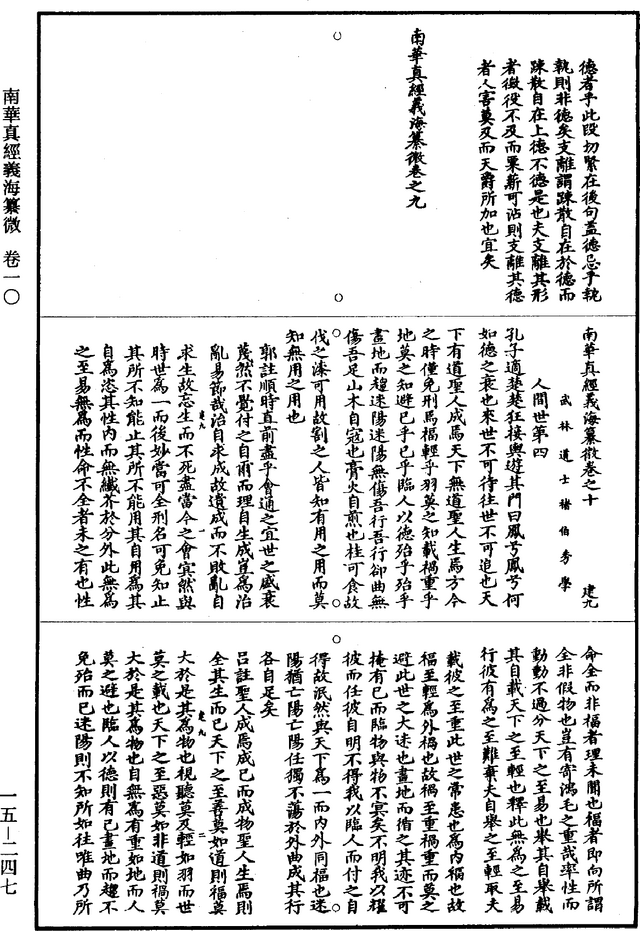 南華真經義海纂微 卷一〇
一五—二四七
德者乎此段切緊在後句蓋德忌乎執
執則非德矣支離謂踈散自在於德而
踈散自在上德不德是也夫支離其形
者徵役不及而粟薪可沾則支離其德
者人害莫及而天爵所加也宜矣
南華真經義海纂微卷之九
南華真經義海纂微卷之十 建九
武林道士褚伯秀學
人間世第四
孔子適楚楚狂接輿遊其門曰鳳兮鳳兮何
如德之衰也來世不可待往世不可追也天
下有道聖人成焉天下無道聖人生焉方今
之時僅免刑焉福輕乎羽莫之知載禍重乎
地莫之知避已乎已乎臨人以德殆乎殆乎
畫地而趨迷陽迷陽無傷吾行吾行卻曲無
傷吾足山木自寇也膏火自煎也桂可食故
伐之漆可用故割之人皆知有用之用而莫
知無用之用也
郭註順時直前盡乎會通之宜世之盛衰
蔑然不覺付之自爾而理自生成豈為治
亂易節哉治自求成故遺成而不敗亂自
求生故忘生而不死盡當今之會冥然與
時世為一而後妙當可全刑名可免知止
其所不知能止其所不能用其自用為其
自為恣其性內而無纖芥於分外此無為
之至易無為而性命不全者未之有也性
命全而非福者理未聞也福者即向所謂
全非假物也豈有寄鴻毛之重哉率性而
動動不過分天下之至易也舉其自舉載
其自載天下之至輕也釋此無為之至易
行彼有為之至難棄夫自舉之至輕取夫
載彼之至重此世之常患也為內福也故
福至輕為外禍也故禍至重禍重而莫之
避此世之大迷也畫地而循之其迹不可
掩有已而臨物與物不冥矣不明我以耀
彼而任彼自明不得我以臨人而付之自
得故泯然與天下為一而內外同福也迷
陽猶亡陽亡陽任獨不蕩於外曲成其行
各自足矣
呂註聖人成焉成已而成物聖人生焉則
全其生而已天下之至善莫如道則福莫
大於是其為物也視聽莫及輕如羽而世
莫之載也天下之至惡莫如非道則禍莫
大於是其為物也自無為有重如地而人
莫之避也臨人以德則有已畫地而趨不
免殆而已迷陽則不知所如往唯曲乃所